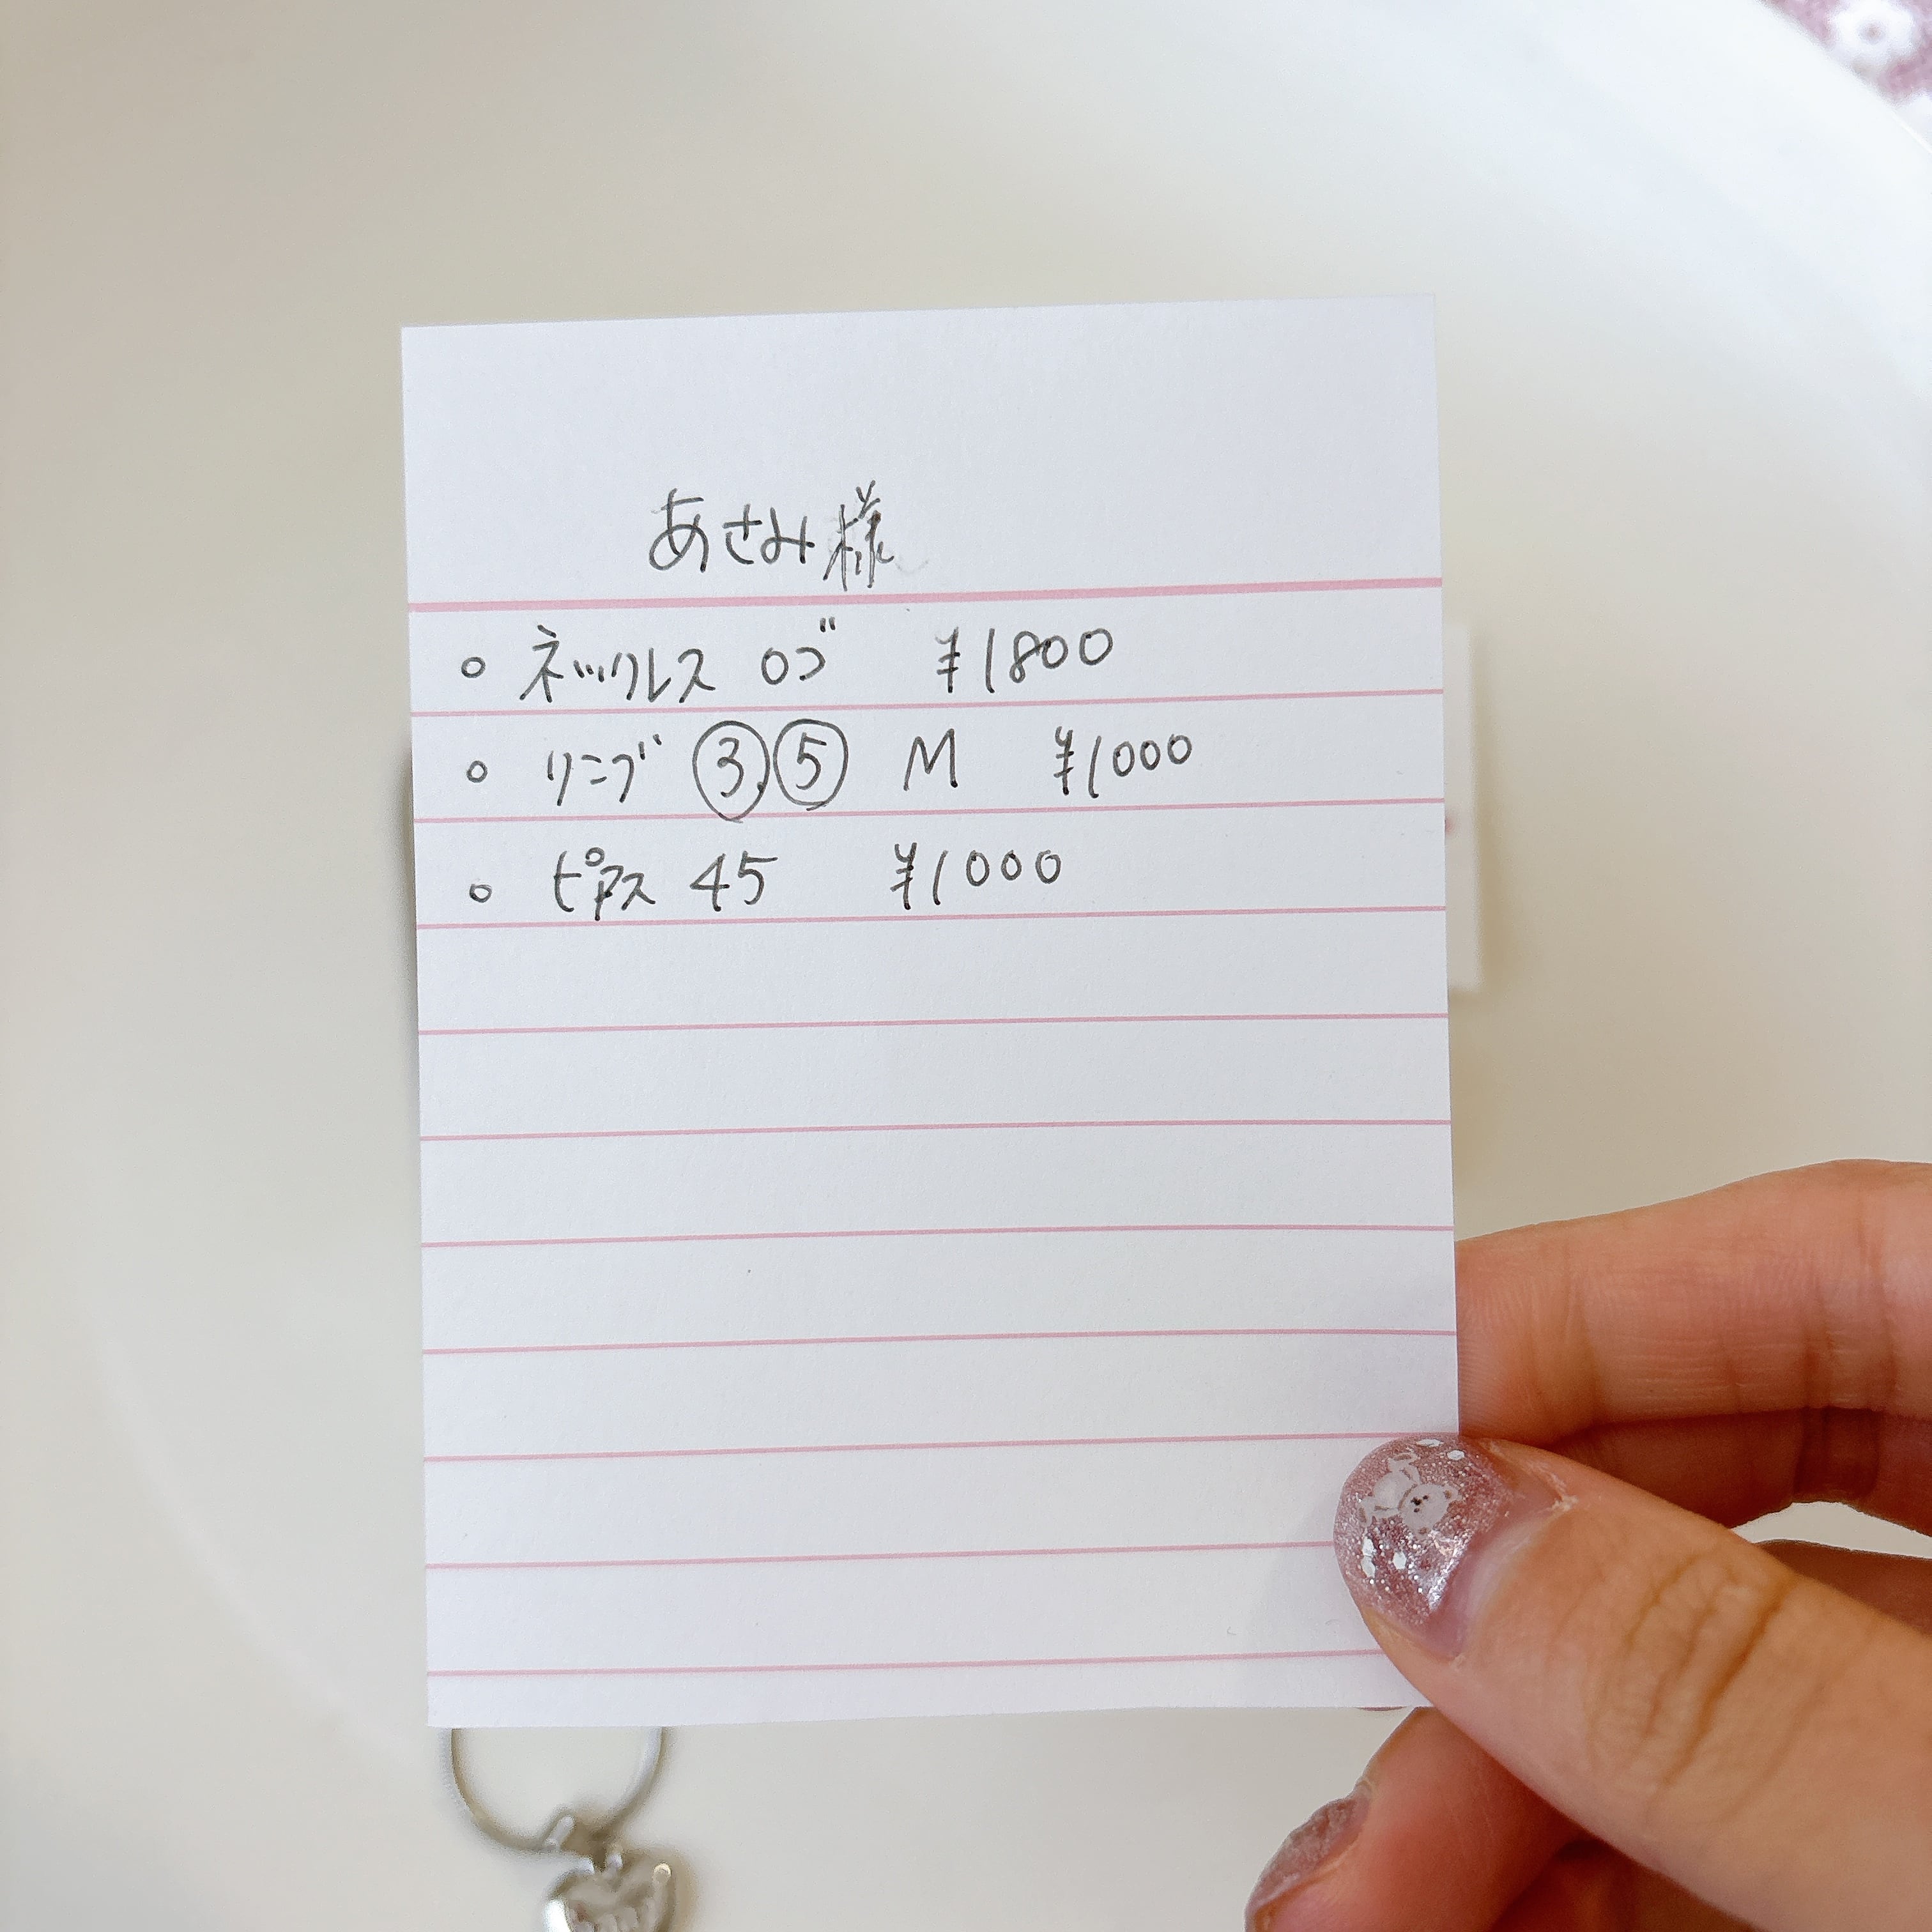 あさみ様
○ ネックレス ロゴ ¥1800
○ リング ③,⑤ M ¥1000
○ ピアス 45 ¥1000